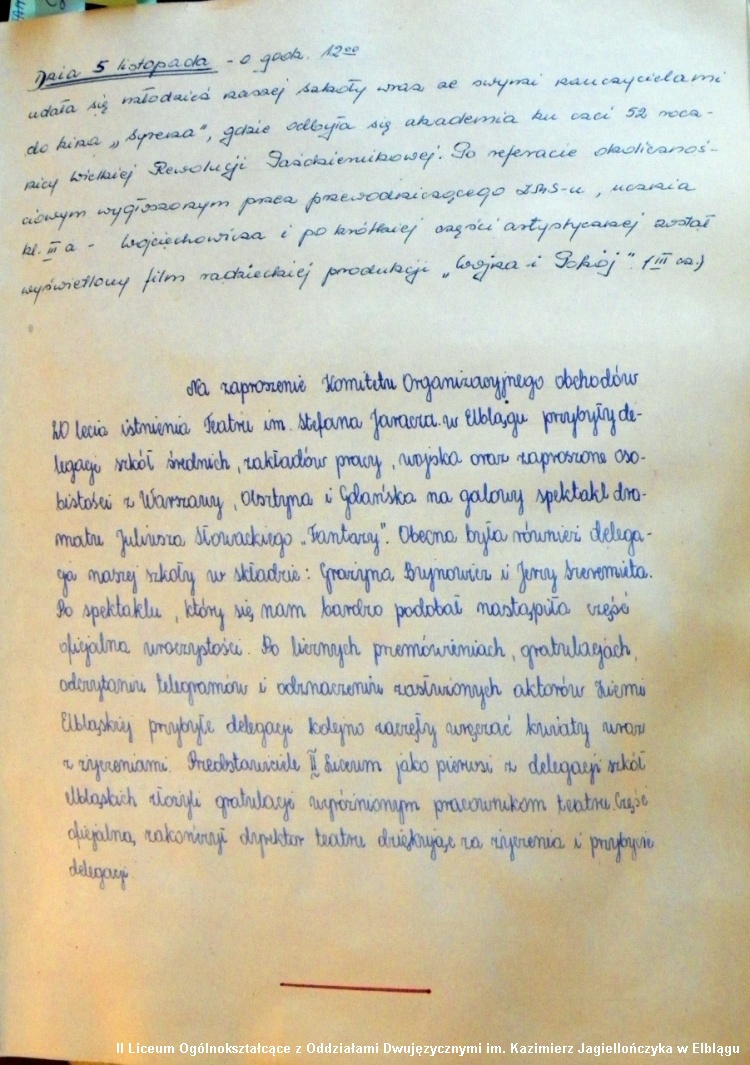 Dnia 5 listopada - o godz. 12⁰⁰
udała się młodzież naszej szkoły wraz ze swymi nauczycielami
do kina „Syrena", gdzie odbyła się akademia ku czci 52 rocz-
nicy Wielkiej Rewolucji Październikowej. Po referacie okolicznoś-
ciowym wygłoszonym przez przewodniczącego ZMS-u, ucznia
kl. III a - Wojciechowicza i po krótkiej części artystycznej został
wyświetlony film radzieckiej produkcji „Wojna i Pokój". (III cz.)
Na zaproszenie Komitetu Organizacyjnego obchodów
20 lecia istnienia Teatru im. Stefana Jaracza w Elblągu przybyły de-
legacji szkół średnich, zakładów pracy, wojska oraz zaproszone oso-
bistości z Warszawy, Olsztyna i Gdańska na galowy spektakl dra-
matu Juliusza Słowackiego „Fantazy". Obecna była również delega-
cja naszej szkoły w składzie: Grażyna Bujnowicz i Jerzy Szeremieta.
Po spektaklu, który się nam bardzo podobał nastąpiła część
oficjalna uroczystości. Po licznych przemówieniach, gratulacjach,
odczytaniu telegramów i odznaczeniu zasłużonych aktorów Ziemi
Elbląskiej przybyłe delegacji kolejno zaczęły wręczać kwiaty wraz
z życzeniami. Przedstawiciele II Liceum jako pierwsi z delegacji szkół
elbląskich złożyli gratulacji wyróżnionym pracownikom teatru. Część
oficjalną zakończył dyrektor teatru dziękując za życzenia i przybycie
delegacji
II Liceum Ogólnokształcące z Oddziałami Dwujęzycznymi im. Kazimierz Jagiellończyka w Elblągu